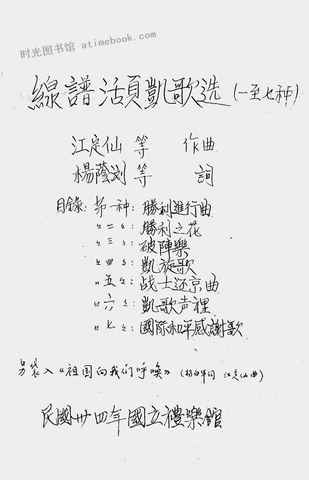 时光图书馆 atimebook.com
線譜活頁凱歌选（一至七种）
江定仙 等 作曲
楊蔭浏 等 詞
目錄：第一种：勝利進行曲
〃二〃：勝利之花
〃三〃：破陣樂
〃四〃：凱旋歌
〃五〃：战士还京曲
〃六〃：凱歌声裡
〃七〃：國際和平感謝歌
另裝入《祖国向我们呼唤》（ 江定仙曲）
民國卅四年國立禮樂館